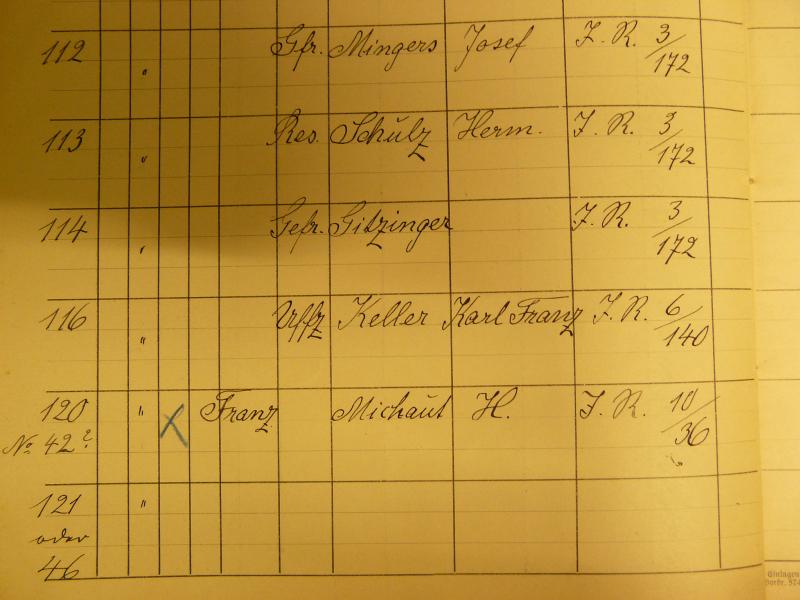 112 " Gfr. Mingers Josef I. R. 3/172
113 " Res. Schulz Herm. I. R. 3/172
114 " Gefr. Gitzinger I. R. 3/172
116 " Uffz Keller Karl Franz I. R. 6/140
120 " X Franz Michaut H. I. R. 10/36
No 42?
121 "
oder
46
Einlagen